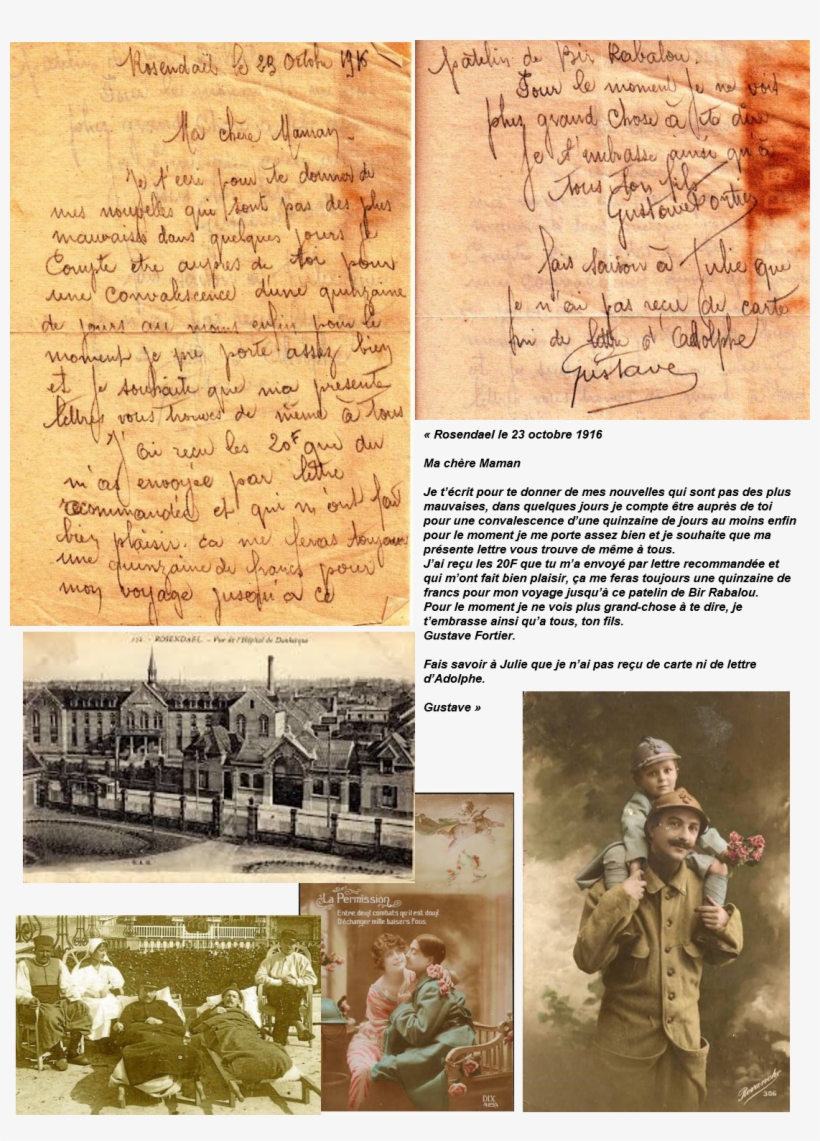 Rosendaël le 23 Octobre 1916
Ma chère Maman
Je t'ecri pour te donner de
mes nouvelles qui sont pas des plus
mauvaises dans quelques jours je
Compte etre aupres de toi pour
une Convalescence d'une quinzaine
de jours au moins enfin pour le
moment je me porte assez bien
et je souhaite que ma presente
lettre vous trouves de même à tous
J'ai reçu les 20F que
m'as envoyée par lettre
recommandée et qui m'ont fait
bien plaisir. ca me feras toujours
une quinzaine de francs pour
mon voyage jusqu'a ce
patelin de Bir Rabalou.
Pour le moment je ne vois
plus grand chose à te dire
je t'embrasse ainsi qu'à
tous ton fils
Gustave Fortier
fais savoir à Julie que
je n'ai pas reçu de carte
ni de lettre d'Adolphe
Gustave
« Rosendael le 23 octobre 1916
Ma chère Maman
Je t'écrit pour te donner de mes nouvelles qui sont pas des plus
mauvaises, dans quelques jours je compte être auprès de toi
pour une convalescence d'une quinzaine de jours au moins enfin
pour le moment je me porte assez bien et je souhaite que ma
présente lettre vous trouve de même à tous.
J'ai reçu les 20F que tu m'a envoyé par lettre recommandée et
qui m'ont fait bien plaisir, ça me feras toujours une quinzaine de
francs pour mon voyage jusqu'à ce patelin de Bir Rabalou.
Pour le moment je ne vois plus grand-chose à te dire, je
t'embrasse ainsi qu'a tous, ton fils.
Gustave Fortier.
Fais savoir à Julie que je n'ai pas reçu de carte ni de lettre
d'Adolphe.
Gustave »
ROSENDAEL - Vue de l'Hôpital de Dunkerque
La Permission
Entre deux combats qu'il est doux
D'échanger mille baisers fous
DIX
306